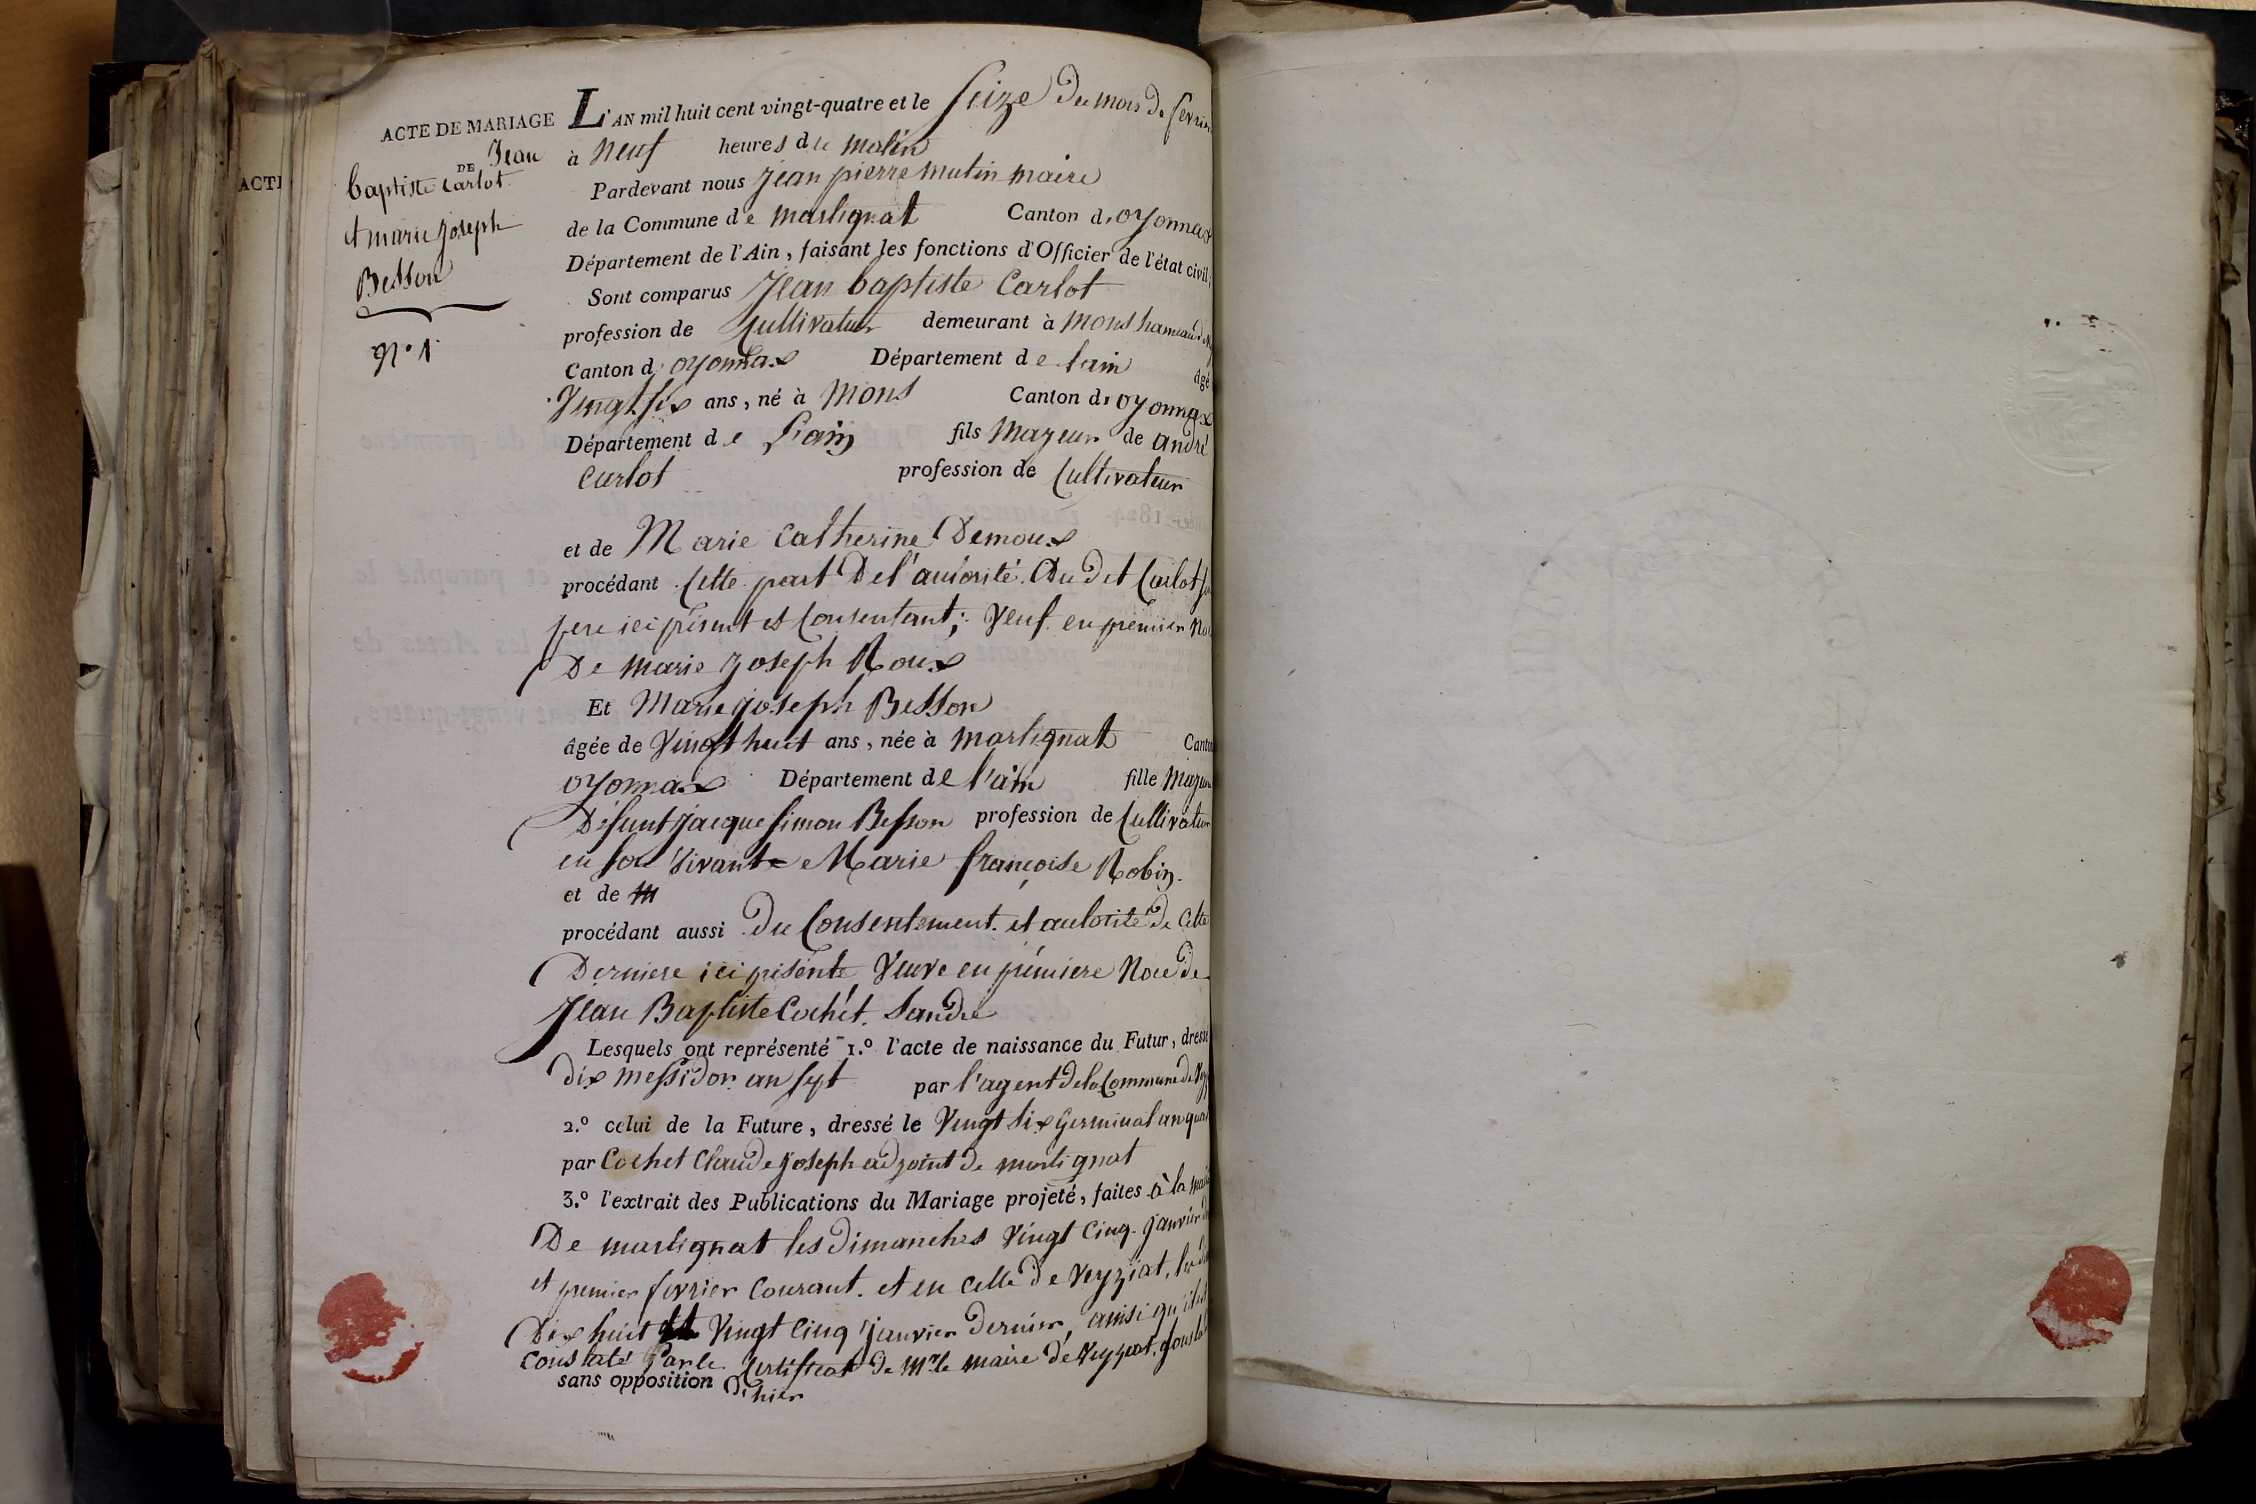 ACTE DE MARIAGE
DE Jean
baptiste Carlot
et marie joseph
Besson
N.o 1.
ACTE
L'AN mil huit cent vingt-quatre et le Seize du mois de fevrier
à Neuf heures du matin
Pardevant nous Jean pierre mutin maire
de la Commune de martignat Canton d'oyonnax
Département de l'Ain, faisant les fonctions d'Officier de l'état civil;
Sont comparus Jean baptiste Carlot
profession de Cultivateur demeurant à Mons hameau de
Canton d'oyonnax Département de lain âgé
Vingt six ans, né à Mons Canton d'oyonnax
Département de Lain fils Majeur de andré
Carlot profession de Cultivateur
et de Marie Catherine Demoux
procédant Cette part De l'autorité Du dit Carlot
pere ici présent et Consentant; Veuf en premier
De marie Joseph Roux
Et Marie joseph Besson
âgée de Vingt huit ans, née à martignat Canton
oyonnax Département de l'ain fille Majeure
Défunt jacque simon Besson profession de Cultivateur
en son Vivant e Marie françoise Robin
et de
procédant aussi Du Consentement et autorité De Cette
Derniere ici présente, Veuve en premiere Noce de
Jean Baptiste Cochet Landre
Lesquels ont représenté 1.º l'acte de naissance du Futur, dressé
dix messidor an sept par l'agent de la Commune de
2.º celui de la Future, dressé le Vingt six Germinal an
par Cochet Claude Joseph adjoint de martignat
3.º l'extrait des Publications du Mariage projeté, faites à la
De martignat les Dimanches Vingt Cinq janvier
et premier fevrier Courant et en celle De Veyziat, les
Dix huit Vingt Cinq janvier Dernier, ainsi qu'il est
Constaté Par le Certificat de Mr. le maire de Veyziat
sans opposition D'hier